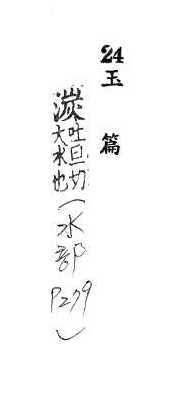 24玉篇
湠吐旦切大水也(水部P279)